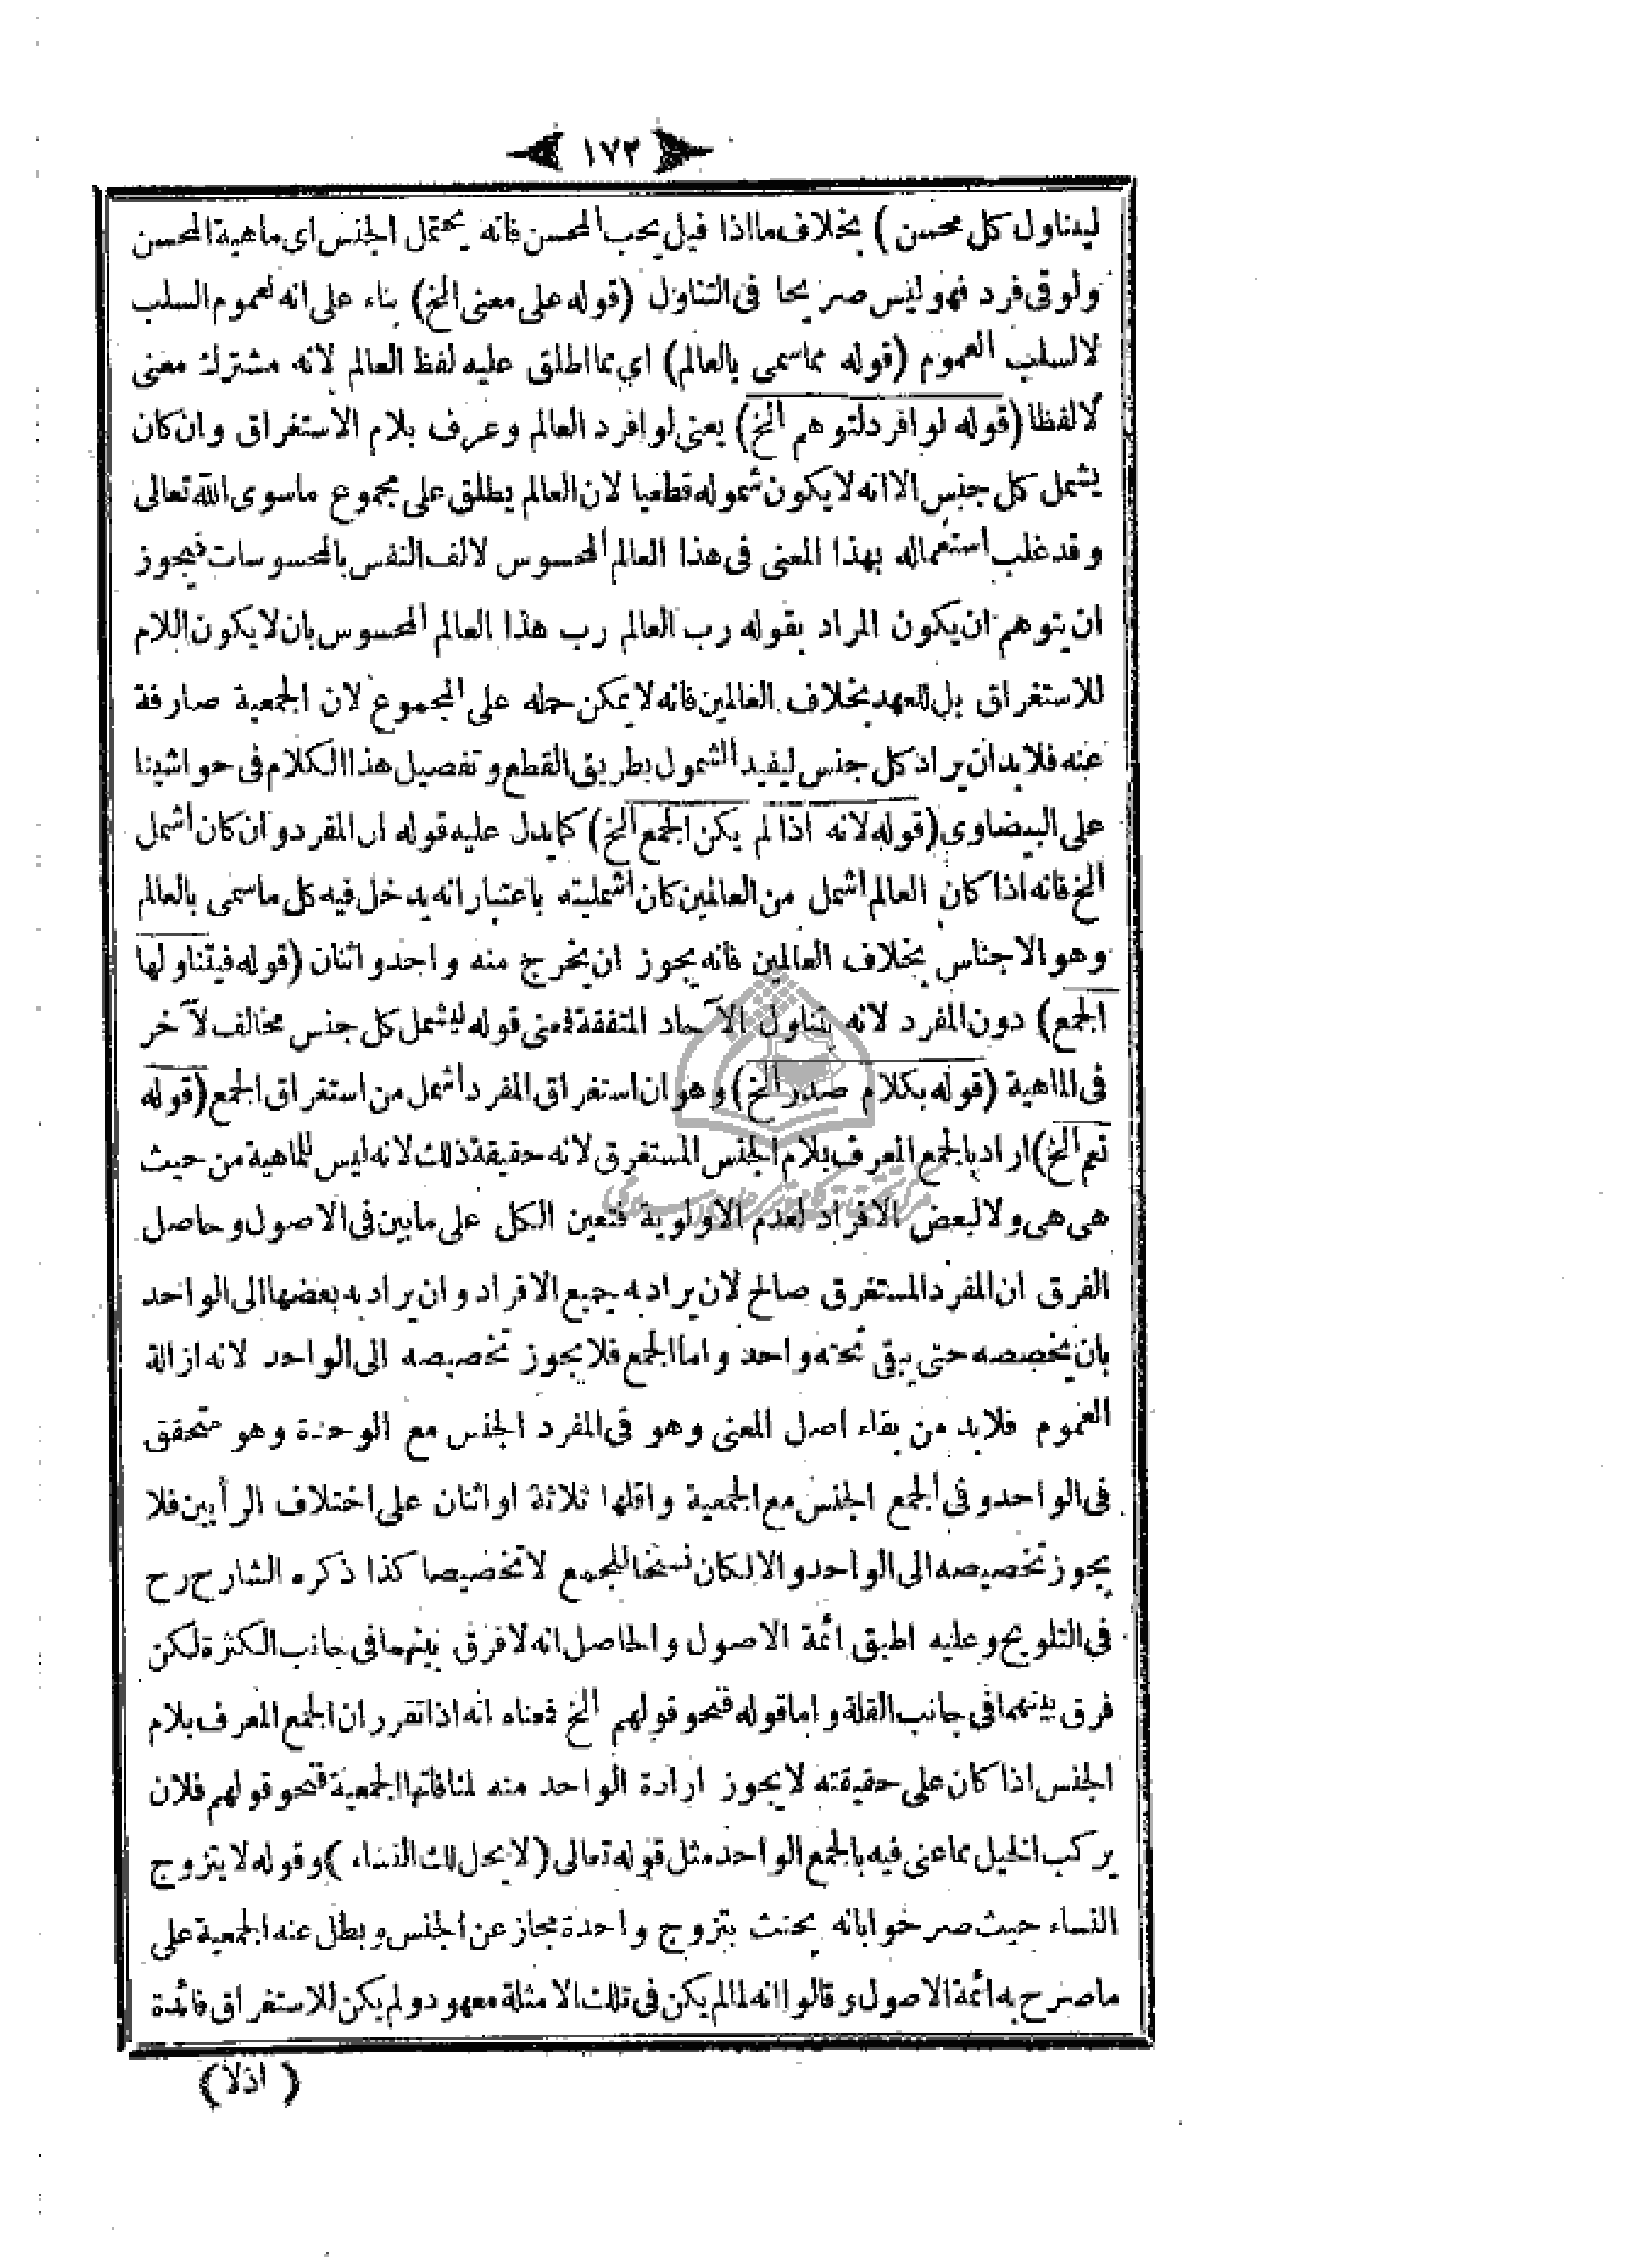 ١٧٢
ليتناول كل محسن ) بخلاف ما اذا قيل يحب المحسن فانه يحتمل الجنس اى ماهية المحسن
ولو فى فرد فهو ليس صريحا فى التناول (قوله على معنى الخ) بناء على انه لعموم السلب
لالسلب العموم (قوله مما سمى بالعالم) اى مما اطلق عليه لفظ العالم لانه مشترك معنى
لالفظا (قوله لو افرد لتوهم الخ) يعنى لو افرد العالم وعرف بلام الاستغراق وان كان
يشمل كل جنس الا انه لا يكون شموله قطعيا لان العالم يطلق على مجموع ماسوى الله تعالى
وقد غلب استعماله بهذا المعنى فى هذا العالم المحسوس لالف النفس بالمحسوسات فيجوز
ان يتوهم ان يكون المراد بقوله رب العالم رب هذا العالم المحسوس بان لا يكون اللام
للاستغراق بل للعهد بخلاف العالمين فانه لا يمكن حمله على المجموع لان الجمعية صارفة
عنه فلابد ان يراد كل جنس ليفيد الشمول بطريق القطع وتفصيل هذا الكلام فى حواشينا
على البيضاوى (قوله لانه اذا لم يكن الجمع الخ) كما يدل عليه قوله ان المفرد وان كان اشمل
الخ فانه اذا كان العالم اشمل من العالمين كان اشمليته باعتبار انه يدخل فيه كل ما سمى بالعالم
وهو الاجناس بخلاف العالمين فانه يجوز ان يخرج منه واحد واثنان (قوله فيتناولها
الجمع) دون المفرد لانه يتناول الآحاد المتفقة فمعنى قوله ليشمل كل جنس مخالف لآخر
فى الماهية (قوله بكلام صدر الخ) وهو ان استغراق المفرد اشمل من استغراق الجمع (قوله
نعم الخ) اراد بالجمع المعرف بلام الجنس المستغرق لانه حقيقة ذلك لانه ليس للماهية من حيث
هى هى ولا لبعض الافراد لعدم الاولوية فتعين الكل على مابين فى الاصول وحاصل
الفرق ان المفرد المستغرق صالح لان يراد به جميع الافراد وان يراد به بعضها الى الواحد
بان يخصصه حتى يبقى تحته واحد واما الجمع فلا يجوز تخصيصه الى الواحد لانه ازالة
العموم فلابد من بقاء اصل المعنى وهو فى المفرد الجنس مع الوحدة وهو متحقق
فى الواحد وفى الجمع الجنس مع الجمعية واقلها ثلاثة او اثنان على اختلاف الرأيين فلا
يجوز تخصيصه الى الواحد والا لكان نسخا للجمع لا تخصيصا كذا ذكره الشارح رح
فى التلويح وعليه اطبق ائمة الاصول والحاصل انه لا فرق بينهما فى جانب الكثرة لكن
فرق بينهما فى جانب القلة واما قوله فنحو قولهم الخ فمعناه انه اذا تقرر ان الجمع المعرف بلام
الجنس اذا كان على حقيقته لا يجوز ارادة الواحد منه لمنافاتها الجمعية فنحو قولهم فلان
يركب الخيل مما عنى فيه بالجمع الواحد مثل قوله تعالى (لا يحل لك النساء ) وقوله لا يتزوج
النساء حيث صرحوا بانه يحنث بتزوج واحدة مجاز عن الجنس وبطل عنه الجمعية على
ما صرح به ائمة الاصول وقالوا انه لما لم يكن فى تلك الامثلة معهود ولم يكن للاستغراق فائدة
( اذلا)